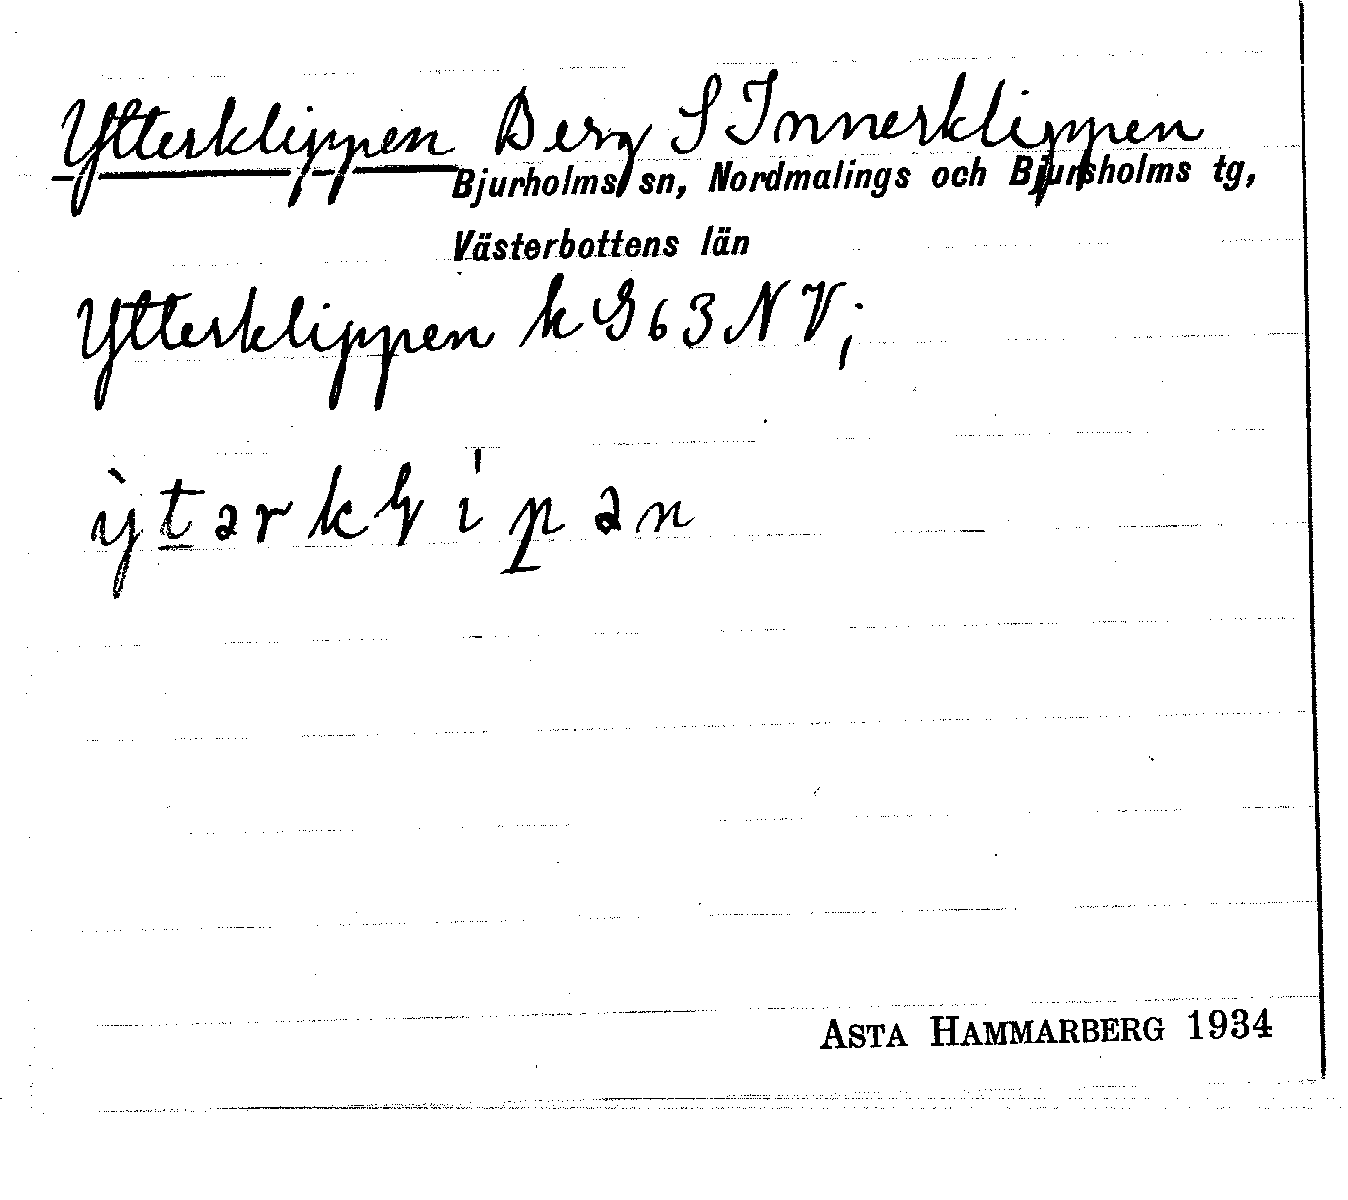 Ytterklippen Berg S Innerklippen
Bjurholms sn, Nordmalings och Bjursholms tg,
Västerbottens län
Ytterklippen k G63NV;
ASTA HAMMARBERG 1934